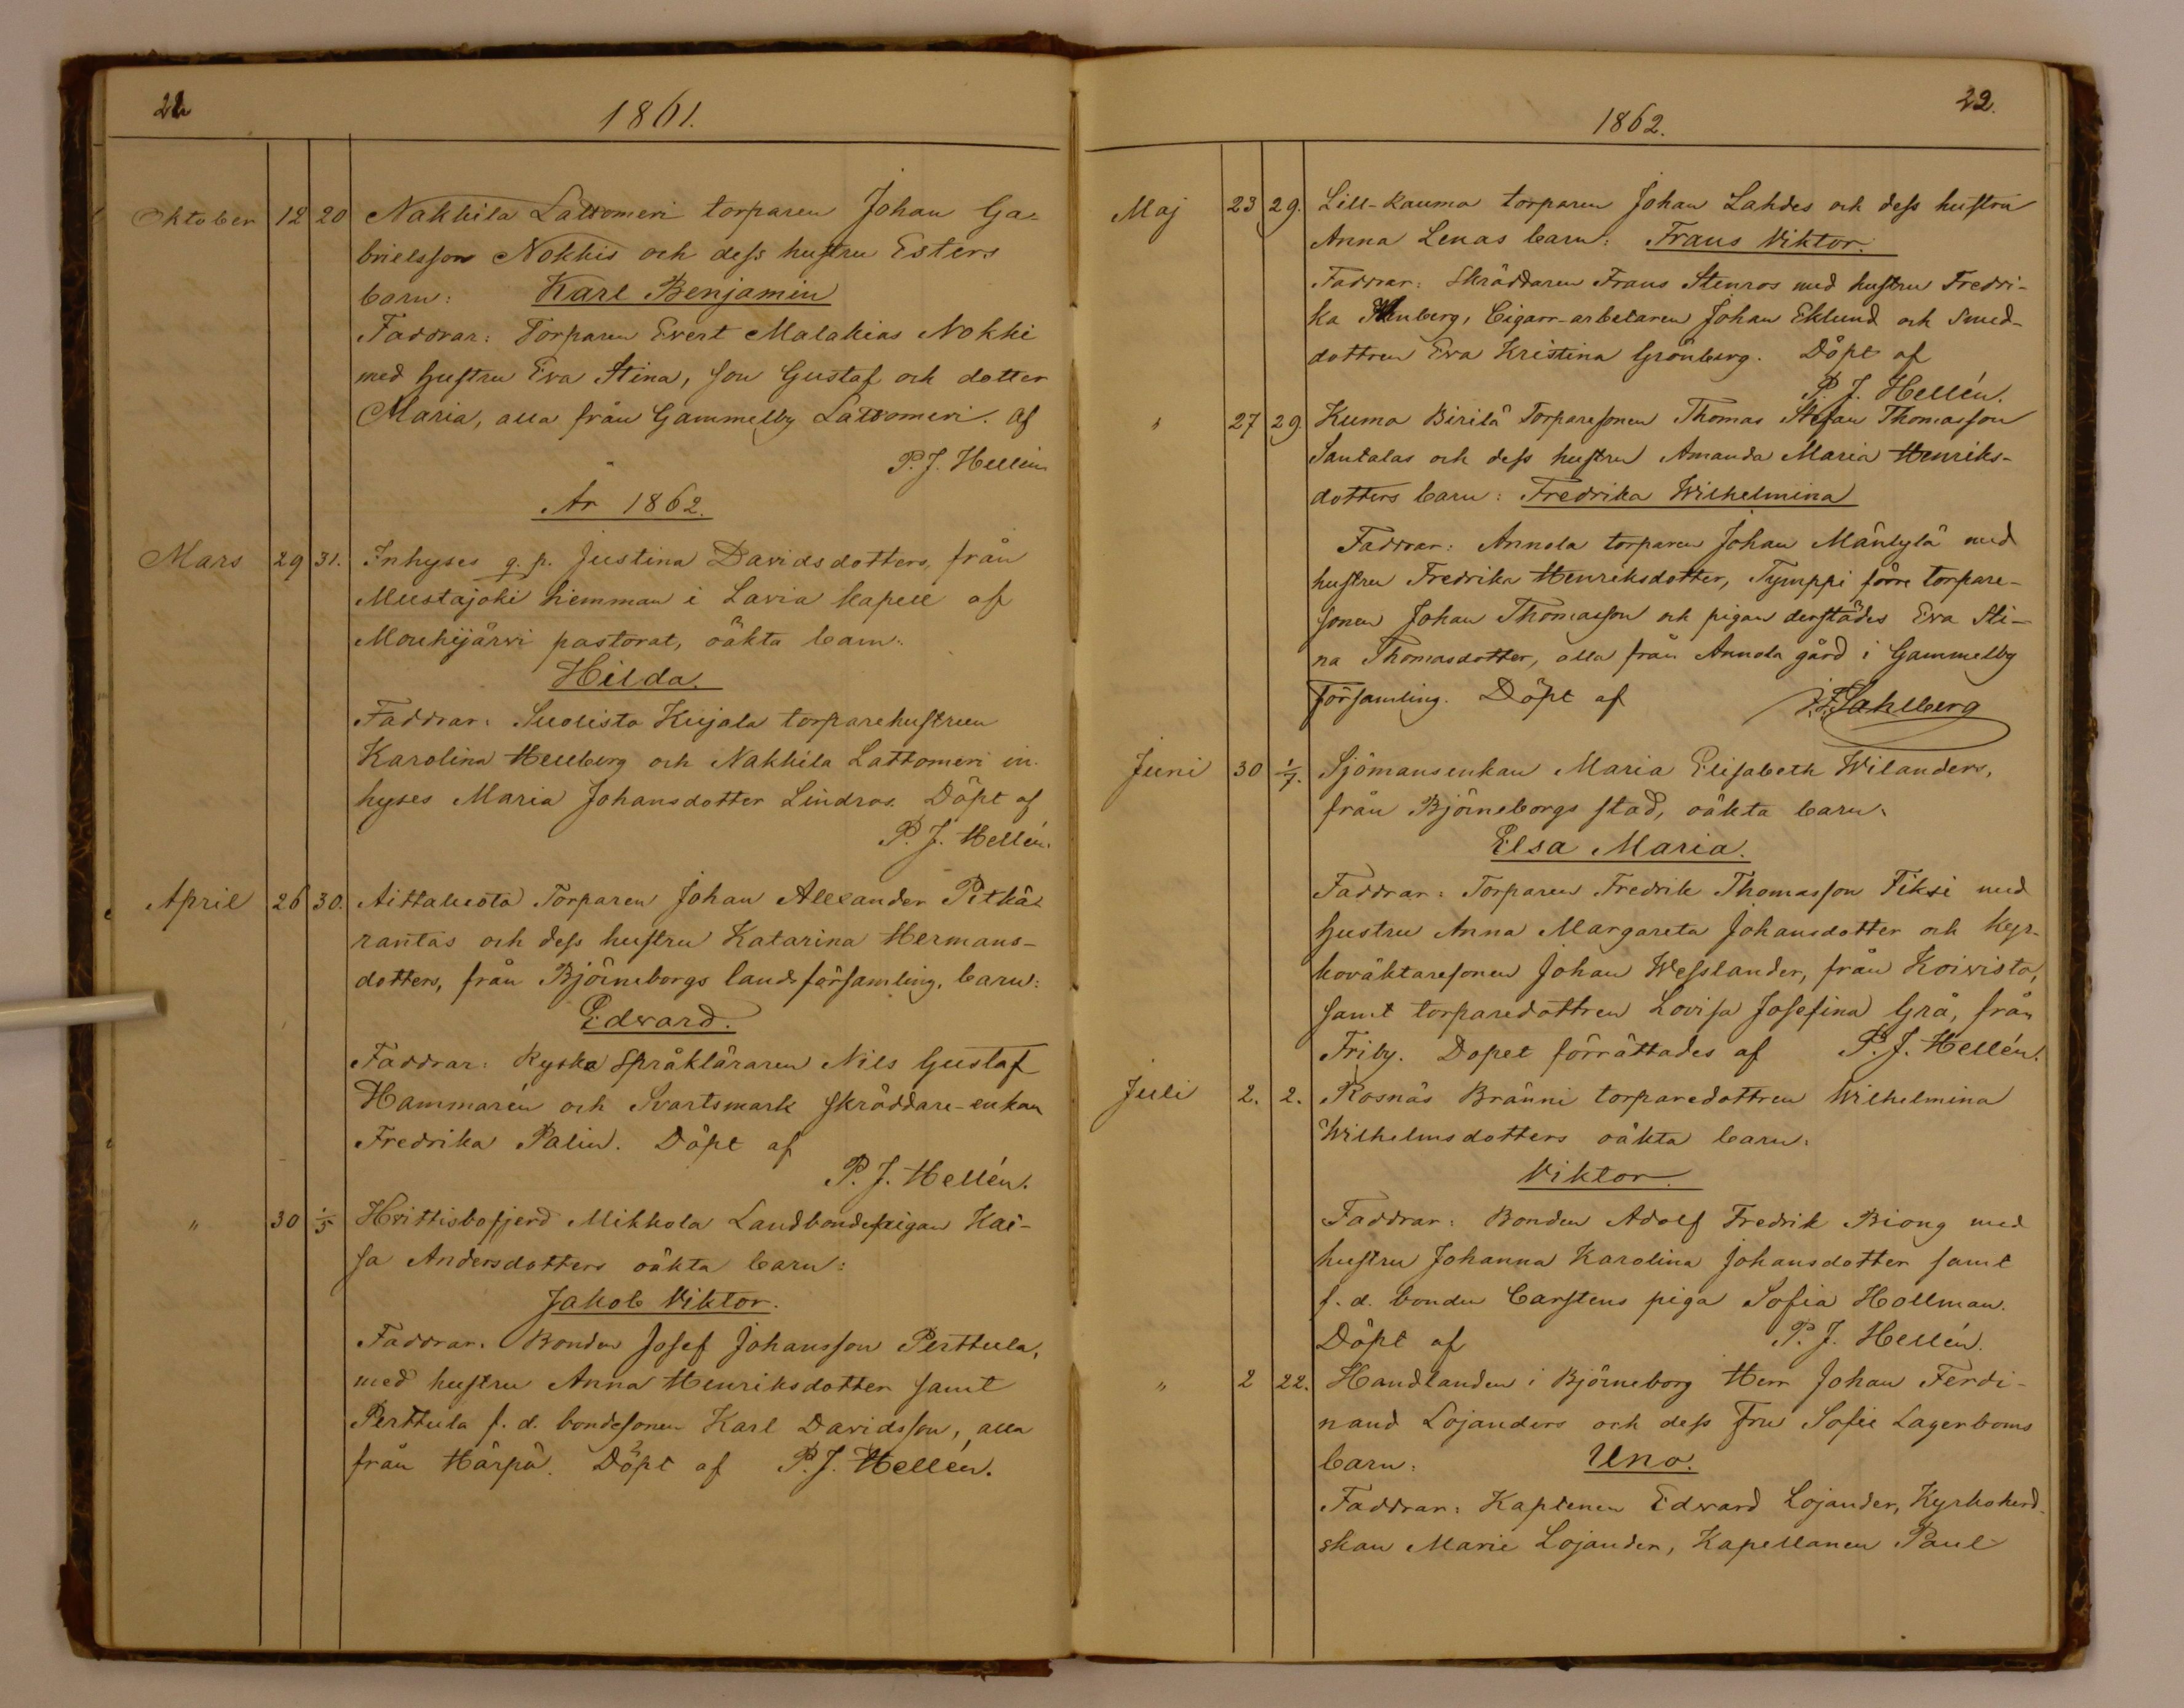 1861.
Oktober 12 20 Nakkila Lattomeri torparen Johan Ga-
brielsson Nokkis och dess hustru Esters
barn: Karl Benjamin
Faddrar: Torparen Evert Malakias Nokki
med hustru Eva Stina, son Gustaf och dotter
Maria, alla från Gammelby Lattomeri. Af
P. J. Hellén
År 1862.
Mars 29 31. Inhyses q. p. Justina Davidsdotters, från
Mustajoki hemman i Lavia kapell af
Mouhijärvi pastorat, oäkta barn:
Hilda.
Faddrar: Suolisto Kujala torparehustrun
Karolina Hellberg och Nakkila Lattomeri in-
hyses Maria Johansdotter Lindros. Döpt af
P. J. Hellén.
April 26 30. Aittaluoto Torparen Johan Alexander Pitkä-
rantas och dess hustru Katarina Hermans-
dotters, från Björneborgs landsförsamling, barn:
Edvard.
Faddrar: Ryska Språkläraren Nils Gustaf
Hammarén och Svartsmark skräddare-enkan
Fredrika Palin. Döpt af
P. J. Hellén.
" 30 1/5 Hvittisbofjerd Mikkola Landbondepigan Kai-
sa Andersdotters oäkta barn:
Jakob Viktor.
Faddrar: Bonden Josef Johansson Perttula,
med hustru Anna Henriksdotter samt
Perttula f. d. bondesonen Karl Davidsson, alla
från Härpö. Döpt af P. J. Hellén.
22.
1862.
Maj 23 29. Lill-Rauma torparen Johan Lahdes och dess hustru
Anna Lenas barn: Frans Viktor.
Faddrar: Skräddaren Frans Stenros med hustru Fredri-
ka Cigarr-arbetaren Johan Eklund och Smed-
dottren Eva Kristina Grönberg. Döpt af
P. J. Hellén.
" 27 29. Kumo Birilä Torparesonen Thomas Stefan Thomasson
Santalas och dess hustru Amanda Maria Henriks-
dotters barn: Fredrika Wilhelmina
Faddrar: Annola torparen Johan Mäntylä med
hustru Fredrika Henriksdotter, Tymppi förre torpare-
sonen Johan Thomasson och pigan derstädes Eva Sti-
na Thomasdotter, alla från Annola gård i Gammelby
församling. Döpt af Sahlberg
Juni 30 1/7. Sjömansenkan Maria Elisabeth Wilanders,
från Björneborgs stad, oäkta barn:
Elsa Maria.
Faddrar: Torparen Fredrik Thomasson Fiksi med
hustru Anna Margareta Johansdotter och kyr-
koväktaresonen Johan Wesslander, från Koivisto,
samt torparedottren Lovisa Josefina Grå, från
Friby. Dopet förrättades af P. J. Hellén.
Juli 2. 2. Rosnäs Bränni torparedottren Wilhelmina
Wilhelmsdotters oäkta barn:
Viktor.
Faddrar: Bonden Adolf Fredrik Biong med
hustru Johanna Karolina Johansdotter samt
f. d. bonden Carstens piga Sofia Hollman.
Döpt af P. J. Hellén.
" 2 22. Handlanden i Björneborg Herr Johan Ferdi-
nand Lojanders och dess Fru Sofie Lagerboms
barn: Uno.
Faddrar: Kaptenen Edvard Lojander, Kyrkoherd-
skan Marie Lojander, Kapellanen Paul